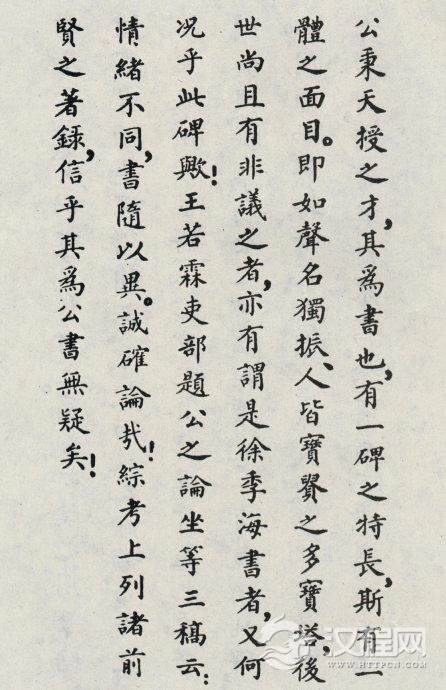 公秉天授之才，其爲書也，有一碑之特長，斯有一
體之面目。即如聲名獨振、人皆寶翫之多寶塔，後
世尚且有非議之者，亦有謂是徐季海書者，又何
况乎此碑歟！王若霖吏部題公之論坐等三稿云：
情緒不同，書隨以異。誠確論哉！綜考上列諸前
賢之著錄，信乎其爲公書無疑矣！
汉程网
HTTPCN.COM